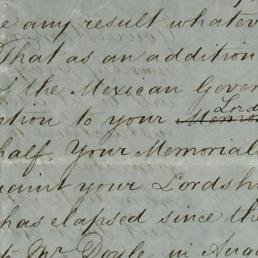 e any result whatev
That as an addition
f the Mexican Gover
ntion to your Lord
half. Your Memoriali
uaint your Lordshi
has elapsed since the
to Mr Doyle, in Aug